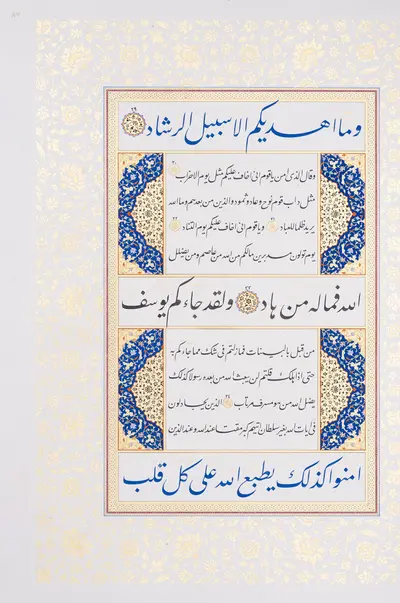 وما اهديكم الا سبيل الرشاد ۲۹
وقال الذى امن ياقوم انى اخاف عليكم مثل يوم الاحزاب
مثل داب قوم نوح وعاد وثمود والذين من بعدهم وما الله
يريد ظلما للعباد وياقوم انى اخاف عليكم يوم التناد
يوم تولون مدبرين مالكم من الله من عاصم ومن يضلل
الله فماله من هاد ولقد جاءكم يوسف
من قبل بالبينات فمازلتم فى شك مما جاءكم به
حتى اذا هلك قلتم لن يبعث الله من بعده رسولا كذلك
يضل الله من هو مسرف مرتاب الذين يجادلون
فى ايات الله بغير سلطان اتيهم كبر مقتا عند الله وعند الذين
امنوا كذلك يطبع الله على كل قلب